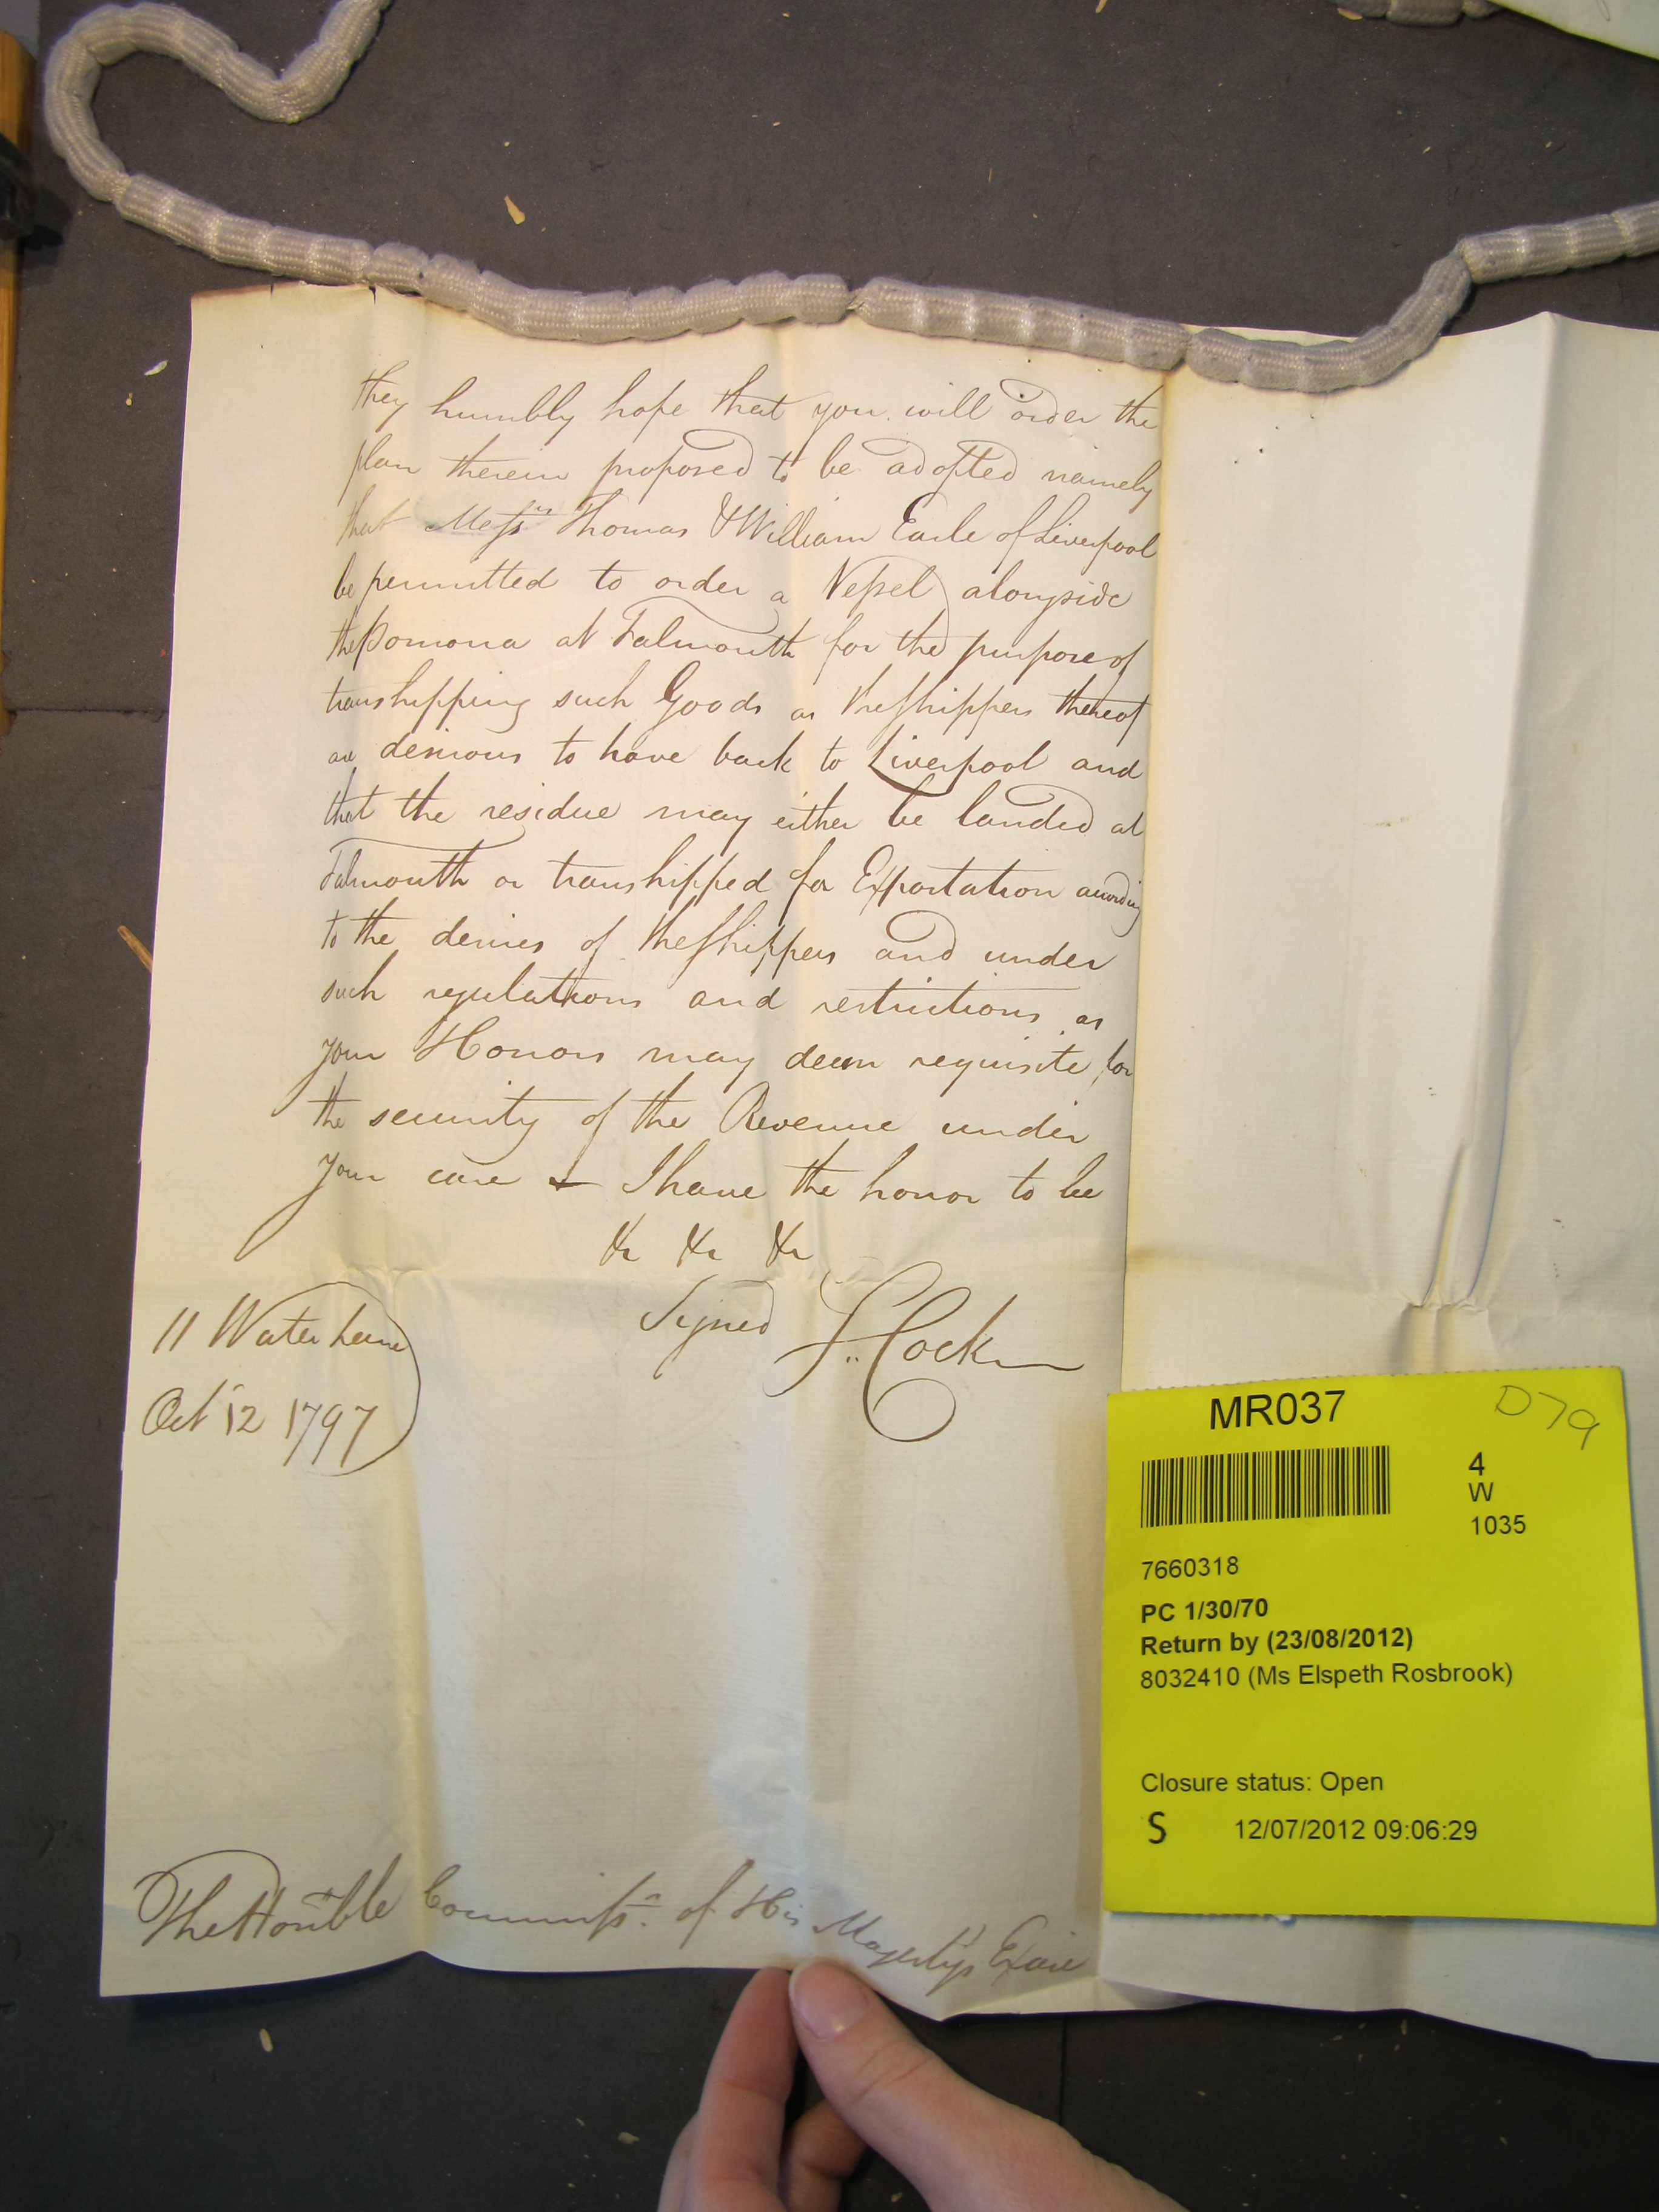 they humbly hope that you will order the
plan therein proposed to be adopted namely
that Messrs Thomas & William Earle of Liverpool
be permitted to order a Vessel alongside
the Pomona at Falmouth for the purpose of
transhipping such Goods as the Shippers thereof
are desirous to have back to Liverpool and
that the residue may either be landed at
Falmouth or transhipped for Exportation according
to the desires of the Shippers and under
such regulations and restrictions as
your Honors may deem requisite for
the security of the Revenue under
your care I have the honor to be
&c &c &c
Signed S. Cock
11 Water Lane
Oct 12 1797
The Honble Commissrs of His Majesty's Excise
MR037
D79
4
W
1035
7660318
PC 1/30/70
Return by (23/08/2012)
8032410 (Ms Elspeth Rosbrook)
Closure status: Open
S 12/07/2012 09:06:29